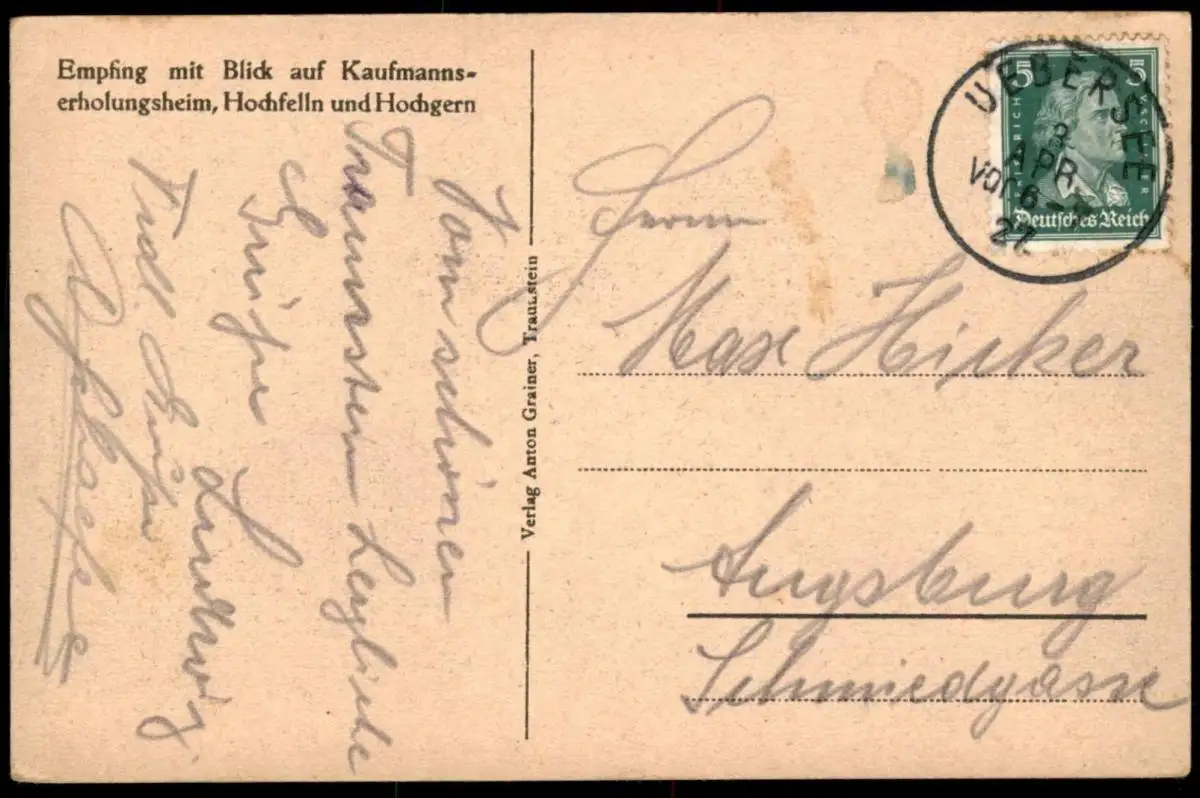 Empfing mit Blick auf Kaufmanns-
erholungsheim, Hochfelln und Hochgern
Vom schönen
Traunstein herzliche
Grüße
Ludwig
Grüße
Verlag Anton Grainer, Traunstein
5 5
Deutsches Reich
UEBERSEE
8
APR
VOR 6-7
27.
Herrn
Max Hicker
Augsburg
Schmiedgasse